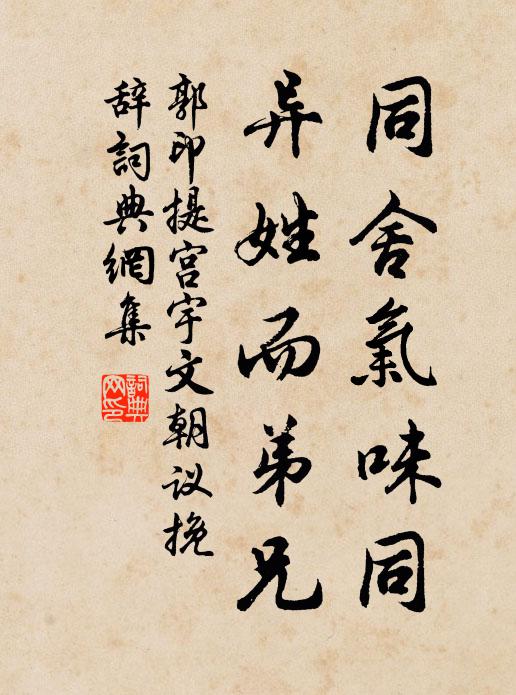 同舍氣味同
异姓而弟兄
郭印提宫宇文朝议挽
辞詞典網集
詞典
网印